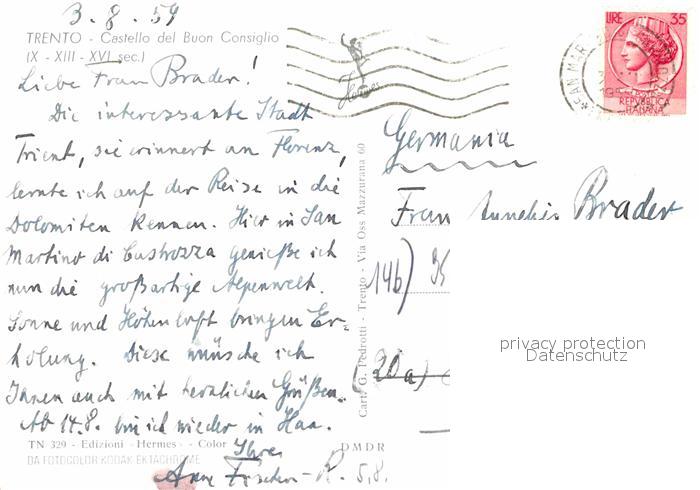 3.8.59
TRENTO - Castello del Buon Consiglio
(X - XIII - XVI sec.)
Liebe Frau Brader!
Die interessante Stadt
Trient, sie erinnert an Florenz,
lernte ich auf der Reise in die
Dolomiten kennen. Hier in San
Martino di Castrozza genieße ich
nun die großartige Alpenwelt.
Sonne und Höhenluft bringen Er-
holung. Diese wünsche ich
Ihnen auch mit herzlichen Grüßen.
Ab 14.8. bin ich wieder in
Ihre
Anne Fischer-R. 5,8.
TN 329 - Edizioni - Hermes - - Color
DMDR
DA FOTOCOLOR KODAK EKTACHROME
Cart. G. Pedrotti - Trento - Via Oss Mazzurana 60
Hermes
LIRE 35
REPVBBLICA
ITALIANA
SAN MAR
Germania
Frau Brader
14b)
(20a)
privacy protection
Datenschutz